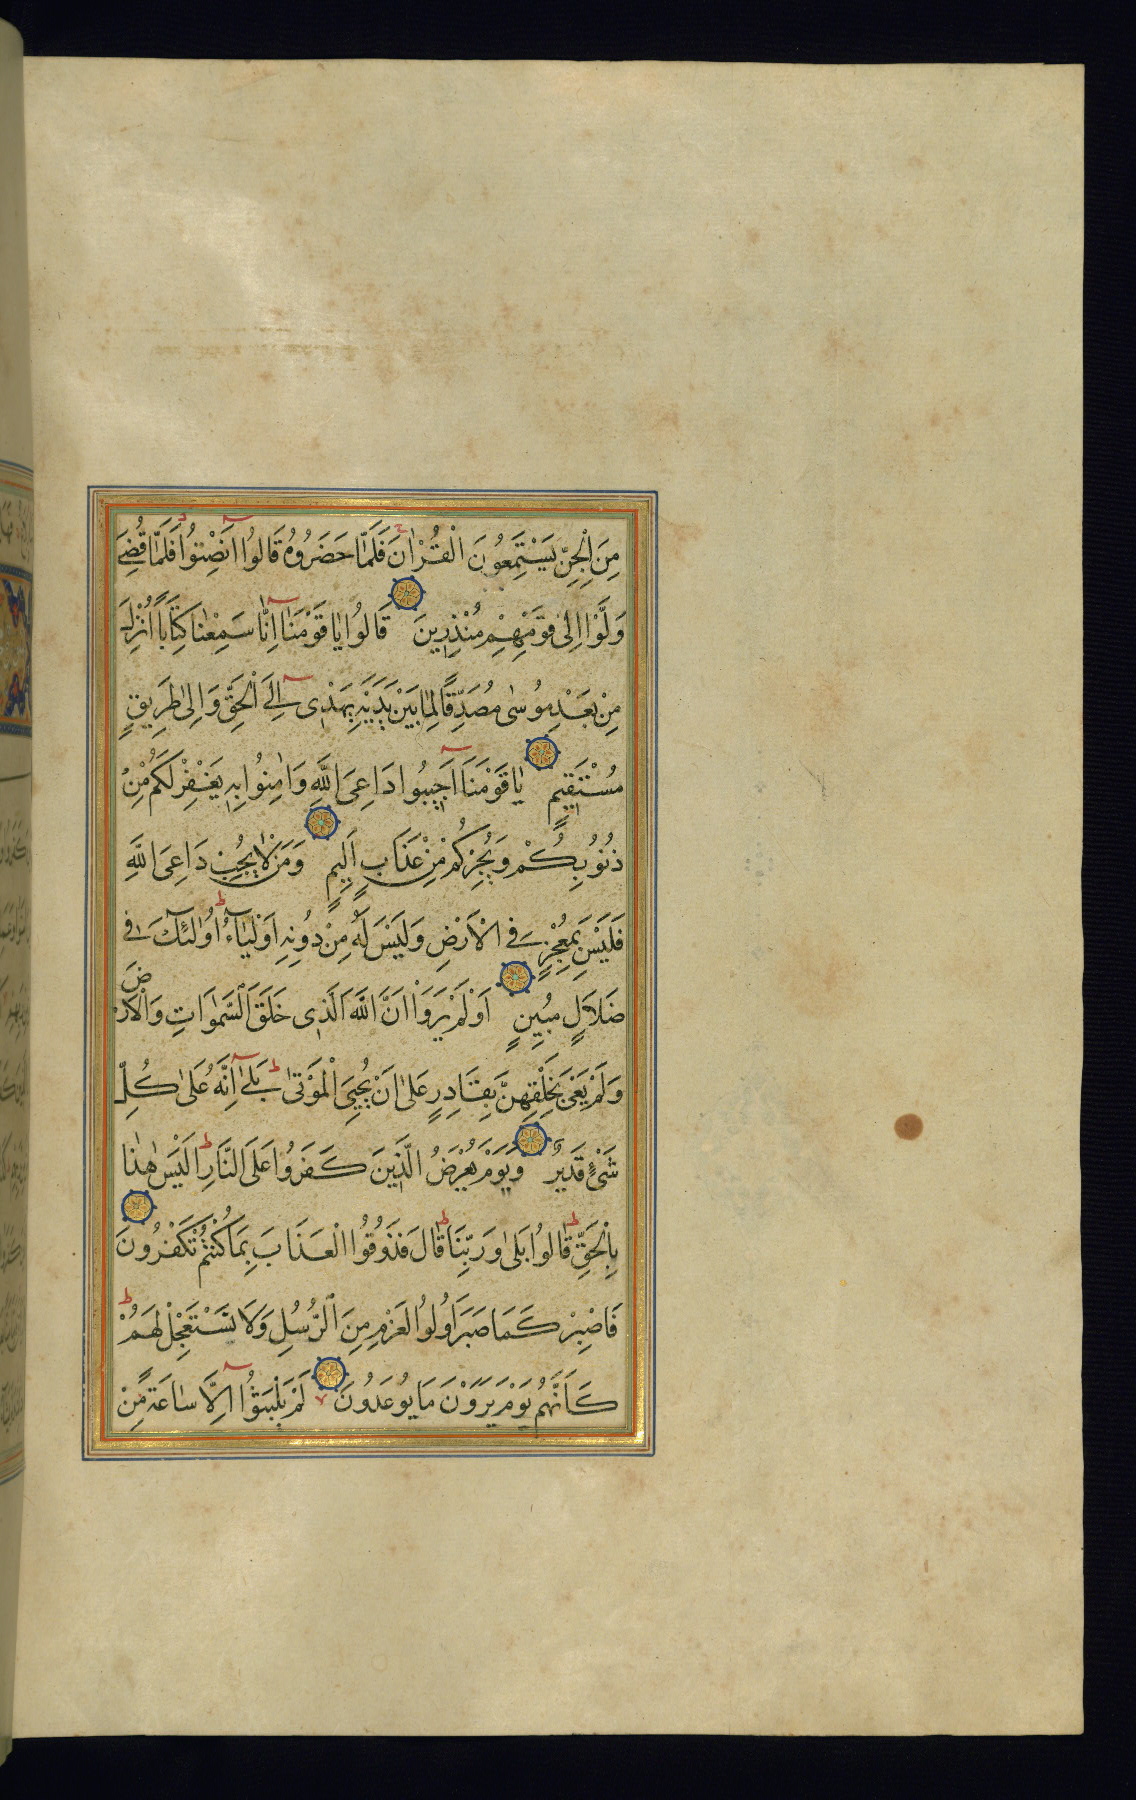 مِنَ الْجِنِّ يَسْتَمِعُونَ الْقُرْاٰنَ فَلَمَّا حَضَرُوهُ قَالُوا اَنْصِتُوا فَلَمَّا قُضِىَ
وَلَّوْا اِلٰى قَوْمِهِمْ مُنْذِرِينَ قَالُوا يَا قَوْمَنَا اِنَّا سَمِعْنَا كِتَابًا اُنْزِلَ
مِنْ بَعْدِ مُوسٰى مُصَدِّقًا لِمَا بَيْنَ يَدَيْهِ يَهْدِى اِلَى الْحَقِّ وَاِلٰى طَرِيقٍ
مُسْتَقِيمٍ يَا قَوْمَنَا اَجِيبُوا دَاعِىَ اللّٰهِ وَاٰمِنُوا بِهِ يَغْفِرْ لَكُمْ مِنْ
ذُنُوبِكُمْ وَيُجِرْكُمْ مِنْ عَذَابٍ اَلِيمٍ وَمَنْ لَا يُجِبْ دَاعِىَ اللّٰهِ
فَلَيْسَ بِمُعْجِزٍ فِى الْاَرْضِ وَلَيْسَ لَهُ مِنْ دُونِهِ اَوْلِيَاءُ اُولٰئِكَ فِى
ضَلَالٍ مُبِينٍ اَوَلَمْ يَرَوْا اَنَّ اللّٰهَ الَّذِى خَلَقَ السَّمٰوَاتِ وَالْاَرْضَ
وَلَمْ يَعْىَ بِخَلْقِهِنَّ بِقَادِرٍ عَلٰى اَنْ يُحْيِىَ الْمَوْتٰى بَلٰى اِنَّهُ عَلٰى كُلِّ
شَىْءٍ قَدِيرٌ وَيَوْمَ يُعْرَضُ الَّذِينَ كَفَرُوا عَلَى النَّارِ اَلَيْسَ هٰذَا
بِالْحَقِّ قَالُوا بَلٰى وَرَبِّنَا قَالَ فَذُوقُوا الْعَذَابَ بِمَا كُنْتُمْ تَكْفُرُونَ
فَاصْبِرْ كَمَا صَبَرَ اُولُوا الْعَزْمِ مِنَ الرُّسُلِ وَلَا تَسْتَعْجِلْ لَهُمْ
كَاَنَّهُمْ يَوْمَ يَرَوْنَ مَا يُوعَدُونَ لَمْ يَلْبَثُوا اِلَّا سَاعَةً مِنْ